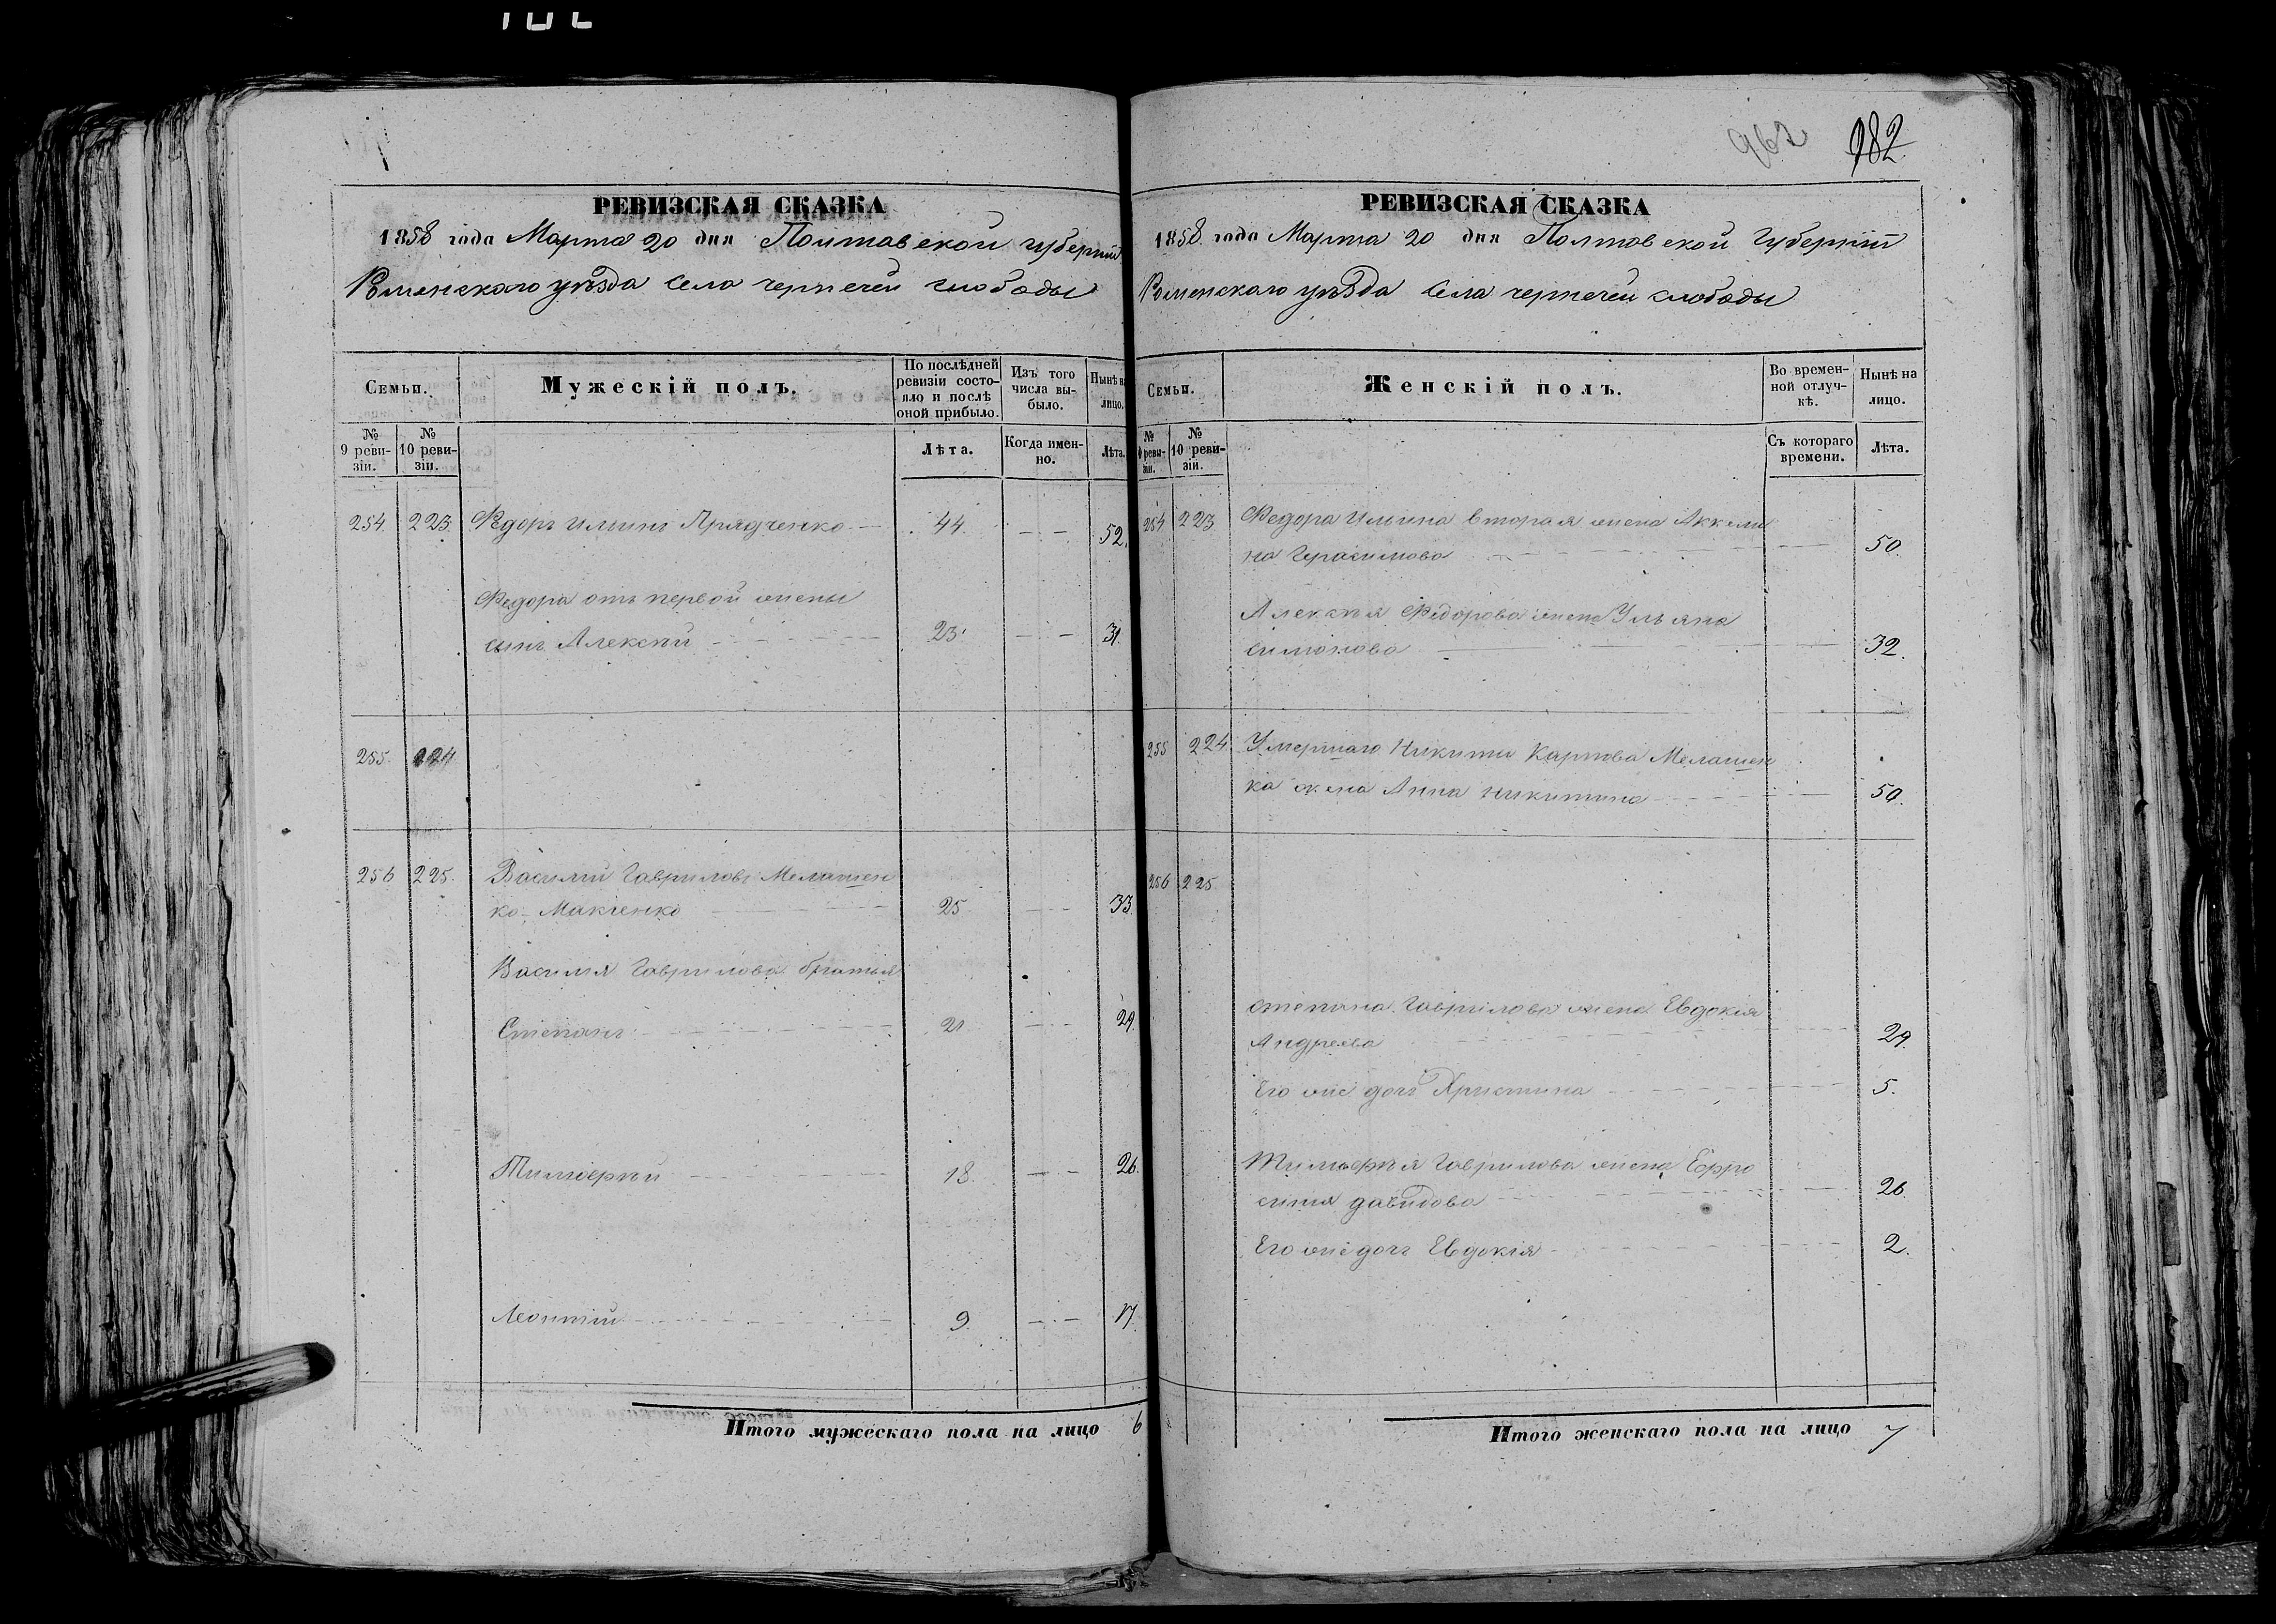 962 982.
РЕВИЗСКАЯ СКАЗКА
1858 года Марта 20 дня Полтавской губерніи
Роменскаго уѣзда Села чернечей слободы
Семьи.
Мужескій полъ.
По послѣдней ревизіи состояло и послѣ оной прибыло.
Изъ того числа выбыло.
Нынѣ на лицо.
№ 9 ревизіи.
№ 10 ревизіи.
Лѣта.
Когда именно.
Лѣта.
254. 223. Федоръ Ильинъ Прядченко 44. 52.
Федора отъ первой жены
сынъ Алексѣй 23. 31.
255. 224
256 225. Василий Гаврилов Мелашен
ко Макіенко 25 33.
Василия Гаврилова братья
Степанъ 21 29.
Тимофѣй 18. 26.
Леонтій 9 17.
Итого мужескаго пола на лицо 6
РЕВИЗСКАЯ СКАЗКА
1858 года Марта 20 дня Полтавской Губерніи
Роменскаго уѣзда Села чернечей слободы
Семьи.
Женскій полъ.
Во временной отлучкѣ.
Нынѣ на лицо.
№ 9 ревизіи.
№ 10 ревизіи.
Съ котораго времени.
Лѣта.
254 223 Федора Ильина вторая жена Аккили
на Герасимова 50.
Алексѣя Федорова жена Ульяна
Симонова 32.
255 224 Умершаго Никиты Карпова Мелашен
ка жена Анна Никитина 50.
256 225
Степана Гаврилова жена Евдокія
Андреева 29.
Его же дочь Христина 5.
Тимофѣя Гаврилова жена Ефро
синия давидова 26.
Его же дочь Евдокія 2.
Итого женскаго пола на лицо 7